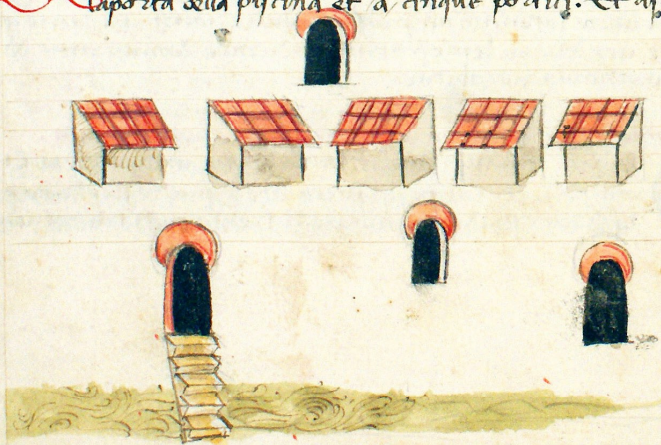 la porta della piscina et a cinque portici. Et ai